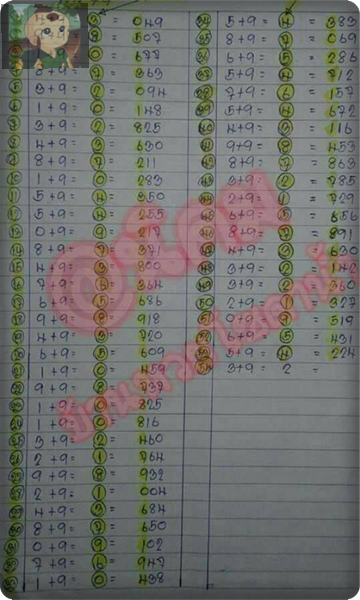 = 049
= 507
= 677
8+9= 7 = 363
5 3+9 = 2 = 094
6 1+9 = 0 = 148
7 3+9 = 2 = 825
8 4+9 = 3 = 630
9 8+9 = 7 = 211
10 1+9 = 0 = 283
11 5+9 = 4 =
12 5+9 = 4 = 255
13 0+9 = 9 = 217
14 8+9 = 7 = 371
15 4+9 = 3 = 300
16 7+9 = 6 = 364
17 6+9 = 5 = 686
18 9+9 = 8 = 918
19 4+9 = 3 = 720
20 6+9 = 5 = 609
21 1+9 = 0 = 459
22 9+9 = 8 = 737
23 1+9 = 0 = 825
24 1+9 = 0 = 816
25 3+9 = 2 = 460
26 2+9 = 1 = 764
27 9+9 = 8 = 932
28 2+9 = 1 = 004
29 4+9 = 3 = 684
30 8+9 = 7 = 650
31 0+9 = 9 = 102
32 7+9 = 6 = 947
33 1+9 = 0 = 438
34 5+9 = 4 = 383
35 8+9 = 7 = 069
36 6+9 = 5 = 286
37 5+9 = 4 = 712
38 7+9 = 6 = 157
39 5+9 = 4 = 672
40 4+9 = 3 = 116
41 9+9 = 8 = 453
42 8+9 = 7 = 863
43 3+9 = 2 = 785
44 2+9 = 1 = 729
45 6+9 = 5 = 656
46 8+9 = 7 = 891
47 4+9 = 3 = 630
48 3+9 = 2 = 142
49 3+9 = 2 = 360
50 2+9 = 1 = 327
51 0+9 = 9 = 519
52 6+9 = 5 = 431
53 5+9 = 4 = 224
54 3+9 = 2 =